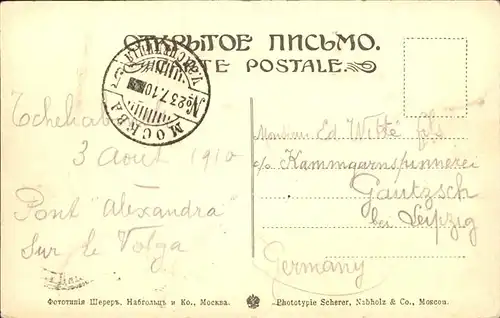 ОТКРЫТОЕ ПИСЬМО.
CARTE POSTALE.
МОСКВА
23.7.10
3 Aout 1910
Pont "Alexandra"
sur le Volga
Monsieur Ed. Witté fils
c/o Kammgarnspinnerei
Gautzsch
bei Leipzig
Germany
Фототипія Шереръ, Набгольцъ и Ко., Москва.
Phototypie Scherer, Nabholz & Co., Moscou.